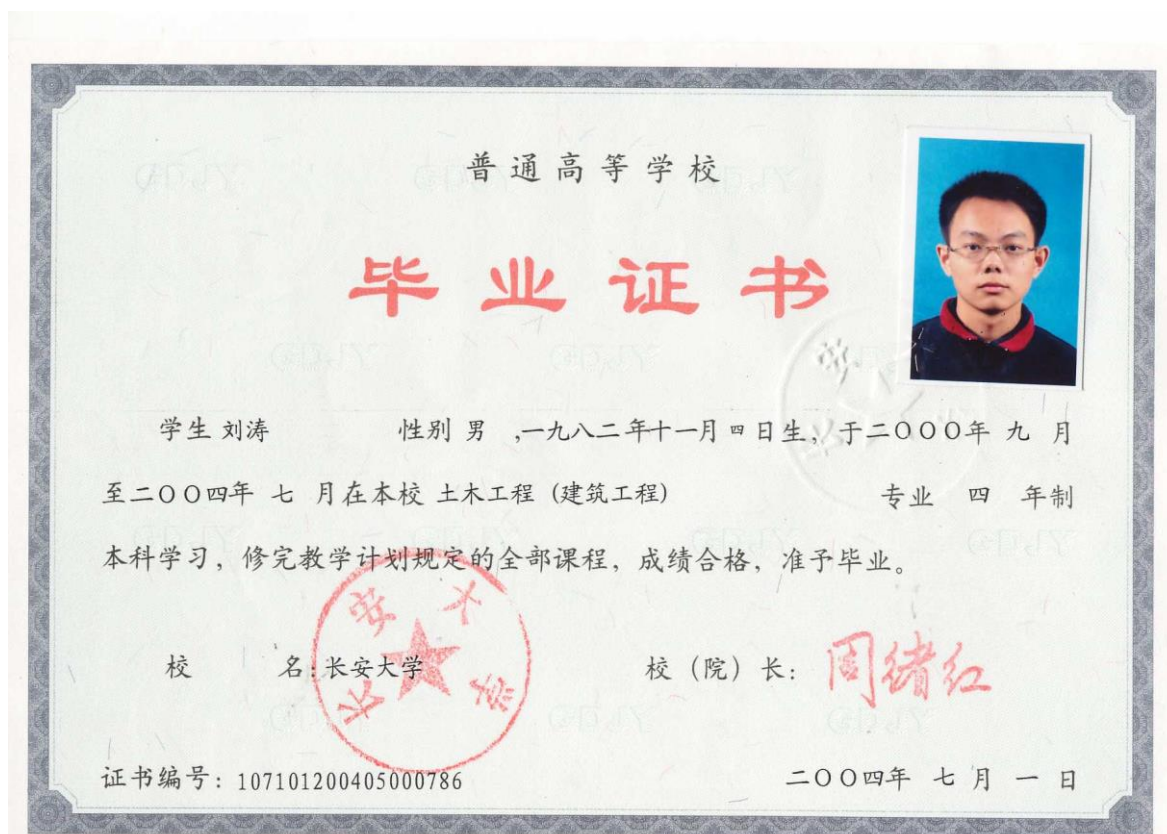 普通高等学校
毕业证书
学生 刘涛 性别 男 ,一九八二年十一月四日生，于二〇〇〇年 九 月
至二〇〇四年 七 月在本校 土木工程 (建筑工程) 专业 四 年制
本科学习，修完教学计划规定的全部课程，成绩合格，准予毕业。
校 名:长安大学
长安大学
校（院）长: 周绪红
证书编号: 107101200405000786
二〇〇四年 七 月 一 日